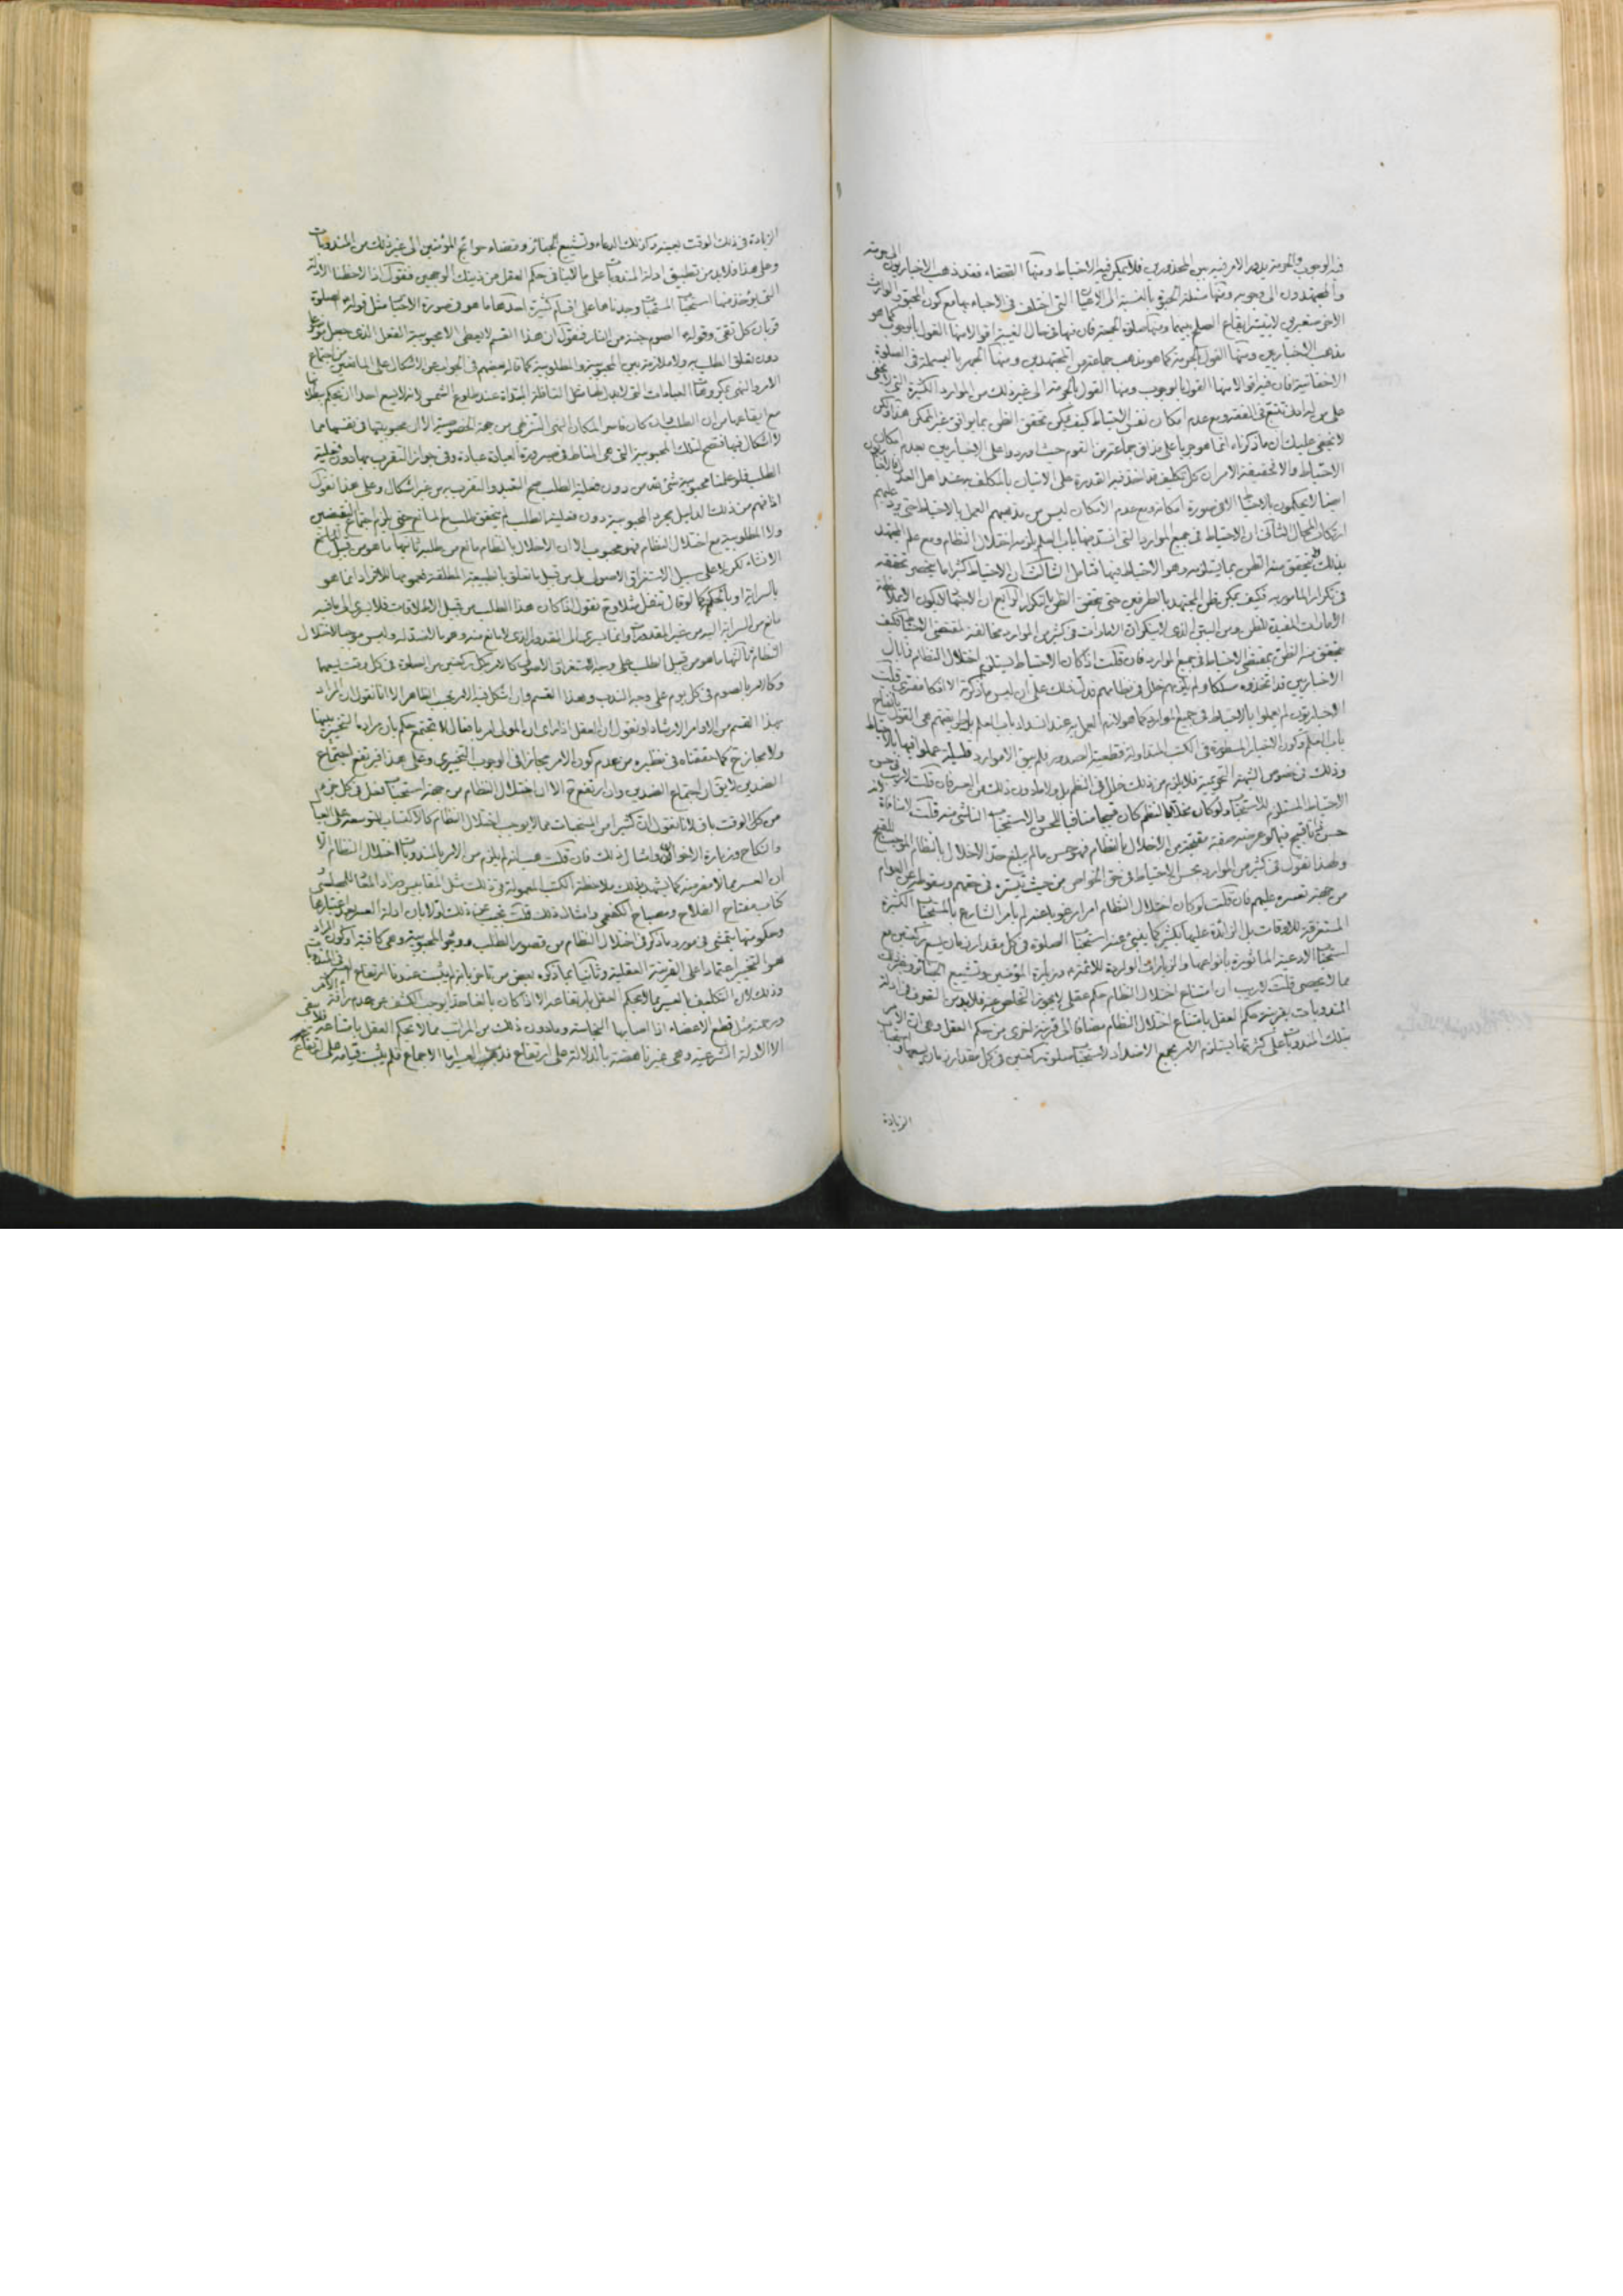 فيه الوجوب والحرمة يدور الامر فيه بين المحذورين فلا يمكن فيه الاحتياط ومنها القضاء فقد ذهب الاخباريون الى حرمته
والمجتهدون الى وجوبه ومنها مسئلة الحبوة بالنسبة الى الاعيان التى اختلف فى الاحباء بها مع كون المحبو والوارث
الاخر صغيرين لا يتيسر ايقاع الصلح بينهما ومنها صلوة الجمعة فان فيها فى حال الغيبة اقوالا منها القول بالوجوب كما هو
مذهب الاخباريين ومنها القول بالحرمة كما هو مذهب جماعة من المجتهدين ومنها الجهر بالبسملة فى الصلوة
الاخفاتية فان فيه اقوالا منها القول بالوجوب ومنها القول بالحرمة الى غير ذلك من الموارد الكثيرة التى لا تخفى
على من له ادنى تتبع فى الفقه ومع عدم امكان نفس الاحتياط كيف يمكن تحقق الظن بما يوافق غير الممكن هذا ولكن
لا يخفى عليك ان ما ذكرناه انما هو جريا على مذاق جماعة من القوم حيث اوردوا على الاخباريين بعدم امكان
الاحتياط والا فحقيقة الامر ان كل تكليف قد اخذ فيه القدرة على الاتيان بالمكلف به عند اهل العدل
ايضا لا يحكمون بالاحتياط الا فى صورة امكانه ومع عدم الامكان ليس من مذهبهم العمل بالاحتياط حتى يرد عليهم
ارتكاب المحال الثانى ان الاحتياط فى جميع الموارد التى انسد فيها باب العلم يلزمه اختلال النظام ومع علم المجتهد
بذلك كيف يتحقق منه الظن بما يستلزمه وهو الاحتياط فيها فتأمل الثالث ان الاحتياط كثيرا ما ينحصر تحققه
فى تكرار المأمور به فكيف يمكن ظن المجتهد بالطرفين حتى يتحقق الظن بالتكرار الرابع ان
الامارات المفيدة للظن ومن البين الذى لا ينكر ان الامارات فى كثير من الموارد مخالفة لمقتضى الاحتياط فكيف
يتحقق منه الظن بمقتضى الاحتياط فى جميع الموارد فان قلت اذا كان الاحتياط يستلزم اختلال النظام فما بال
الاخباريين قد اتخذوه مسلكا ولم يقع بهم خلل فى نظامهم فدل ذلك على ان ليس ما ذكرته الا افكا مفترى قلت
الاخباريون لم يعملوا بالاحتياط فى جميع الموارد كما هو لازم العمل به عند انسداد باب العلم بل طريقتهم هى القول بانفتاح
باب العلم وكون الاخبار المسطورة فى الكتب المتداولة قطعية الصدور فلم يبق الا موارد قليلة عملوا فيها بالاحتياط
وذلك فى خصوص الشبهة التحريمية فلا يلزم من ذلك خلل فى النظم بل ولا ما دون ذلك من العسر فان قلت لا ريب فى حسن
الاحتياط المستلزم للاستحباب ولو كان مخلا بالنظم كان قبيحا منافيا للحسن والاستحباب الناشئ منه قلت لا منافاة لانه
حسن ذاتا قبيح فيما لو عرضته صفة مقبحة من الاخلال بالنظام فهو حسن ما لم يبلغ حد الاخلال بالنظام الموجب للقبح
ولهذا نقول فى كثير من الموارد بحسن الاحتياط فى حق الخواص من حيث تيسره فى حقهم وسقوطه عن العوام
من جهة تعسره عليهم فان قلت لو كان اختلال النظام امرا مرغوبا عنه لم يأمر الشارع بالمستحبات الكثيرة
المستغرقة للاوقات بل الزائدة عليها بكثير كما ينبئ عنه استحباب الصلوة فى كل مقدار زمان يسع ركعتين مع
استحباب الادعية المأثورة بانواعها والزيارات الواردة للائمة ع وزيارة المؤمنين وتشييع الجنائز وغير ذلك
مما لا يحصى قلت لا ريب ان امتناع اختلال النظام حكم عقلى لا يجوز التخلص عنه فلا بد من التصرف فى ادلة
المندوبات بقرينة حكم العقل بامتناع اختلال النظام مضافا الى قرينة اخرى من حكم العقل وهى ان الامر
بتلك المندوبات على كثرتها يستلزم الامر بجمع الاضداد لاستحباب صلوة ركعتين فى كل مقدار زمان يسعهما واستحباب
الزيادة
الزيادة فى ذلك الوقت بعينه وكذلك الدعاء وتشييع الجنائز وقضاء حوائج المؤمنين الى غير ذلك من المندوبات
وعلى هذا فلا بد من تطبيق ادلة المندوبات على ما لا ينافى حكم العقل من ذينك الوجهين فنقول اذا لاحظنا الادلة
التى يؤخذ منها استحباب المستحبات وجدناها على اقسام كثيرة احدها ما هو فى صورة الاخبار مثل قوله ع الصلوة
قربان كل تقى وقوله ع الصوم جنة من النار فنقول ان هذا القسم لا يعطى الا محبوبية الفعل الذى جعل موضوعا
دون تعلق الطلب به ولا ملازمة بين المحبوبية والمطلوبية كما قاله بعضهم فى الجواب عن الاشكال على المانعين من اجتماع
الامر والنهى بمكروهات العبادات التى لا بدل لها مثل النافلة المبتدأة عند طلوع الشمس لانه لا يسع احدا ان يحكم ببطلانها
مع ايقاعها من ان الطلب وان كان فاسدا لمكان النهى التنزيهى من جهة الخصوصية الا ان محبوبيتها فى نفسها مما
لا اشكال فيها فتصح لتلك المحبوبية التى هى المناط فى صيرورة العبادة عبادة وفى جواز التقرب بها دون فعلية
الطلب فلو علمنا محبوبية شئ نفسه من دون فعلية الطلب صح التعبد والتقرب به من غير اشكال وعلى هذا نقول
اذا فهم من ذلك الدليل مجرد المحبوبية دون فعلية الطلب لم يتحقق طلب مع المانع حتى يلزم اجتماع النقيضين
ولا المطلوبية مع اختلال النظام فهو محبوب الا ان الاخلال بالنظام مانع من طلبه ثانيها ما هو من قبيل
الانشاء لكن لا على سبيل الاستغراق الاصولى بل من قبيل ما تعلق بالطبيعة المطلقة فعمومها للافراد انما هو
بالسراية او بالحكمة كما لو قال تنفل مثلا وح نقول اذا كان هذا الطلب من قبيل الاطلاقات فلا يسرى الى ما فيه
مانع من السراية اليه من غير المقدورات وانما يسرى الى المقدور الذى لا مانع منه وهو ما لا ضد له وليس موجبا لاختلال
النظام ثالثها ما هو من قبيل الطلب على وجه الاستغراق الاصولى كالامر بكل ركعتين من الصلوة فى كل وقت يسعهما
وكالامر بالصوم فى كل يوم على وجه الندب وهذا القسم وان اشكل فيه الامر بحسب الظاهر الا انا نقول ان المراد
بهذا القسم من الاوامر الارشاد او نقول ان العقل اذا رأى ان المولى امر بافعال لا تجتمع حكم بان مراده التخيير بينها
ولا مجاز ح كما حققناه فى نظيره من عدم كون الامر مجازا فى الوجوب التخييرى وعلى هذا فيرتفع اجتماع
الضدين لا يقال اجتماع الضدين وان ارتفع ح الا ان اختلال النظام من جهة استحباب فعل فى كل جزء
من كل الوقت باق لانا نقول ان كثيرا من المستحبات مما لا يوجب اختلال النظام كالاكتساب للتوسعة على العيال
والنكاح وزيارة الاخوان وامثال ذلك فان قلت هب انه لم يلزم من الامر بالمندوبات اختلال النظام الا
ان العسر مما لا مفر منه كما يشهد بذلك ملاحظة الكتب المعمولة فى ذلك مثل المقابيس وزاد المعاد للمجلسى
كتاب مفتاح الفلاح ومصباح الكفعمى وامثال ذلك قلت يجاب عن ذلك اولا بان ادلة العسر
وحكومتها يتمشى فى مورد ما ذكر فى اختلال النظام من قصور الطلب ومحو المحبوبية وهى كافية او كون المراد
هو التخيير اعتمادا على القرينة العقلية وثانيا بما ذكره بعض من تأخر بانه لم يثبت عندنا ارتفاع العسر فى المندوبات
وذلك لان التكليف بالعسير مما لا يحكم العقل بارتفاعه الا اذا كان بالغا حدا يوجب الكشف عن عدم رأفة الآمر
ورحمته مثل قطع الاعضاء اذا اصابها النجاسة وما دون ذلك من المراتب مما لا يحكم العقل بامتناعه فلا يبقى
الا الادلة الشرعية وهى غير ناهضة بالدلالة على ارتفاع ندب العسير اما الاجماع فلم يثبت قيامه على ارتفاع